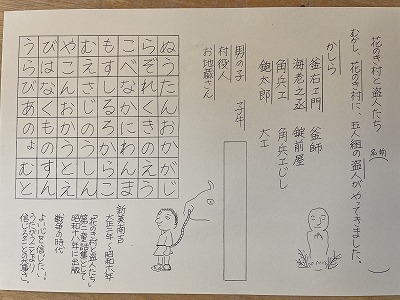 花のき村と盗人たち (名前)
むかし、花のき村に、五人組の盗人がやってきました。
かしら
釜右エ門 釜師
海老之丞 錠前屋
角兵エ 角兵エじし
鉋太郎 大工
男の子 子牛
村役人
お地蔵さん
ぬうたんおかがじ
らぞれくきのえう
こべなかにわんま
もすするろからこ
むえさじのうしん
やこんおかうとえ
びはなくものすん
うらびあのょむと
新美南吉
大正二年〜昭和十八年
「花のき村と盗人たち」
第三童話集として
昭和十八年に出版
戦争の時代
よい心を信じたい。
うたがうことより
信じることの大事さ。